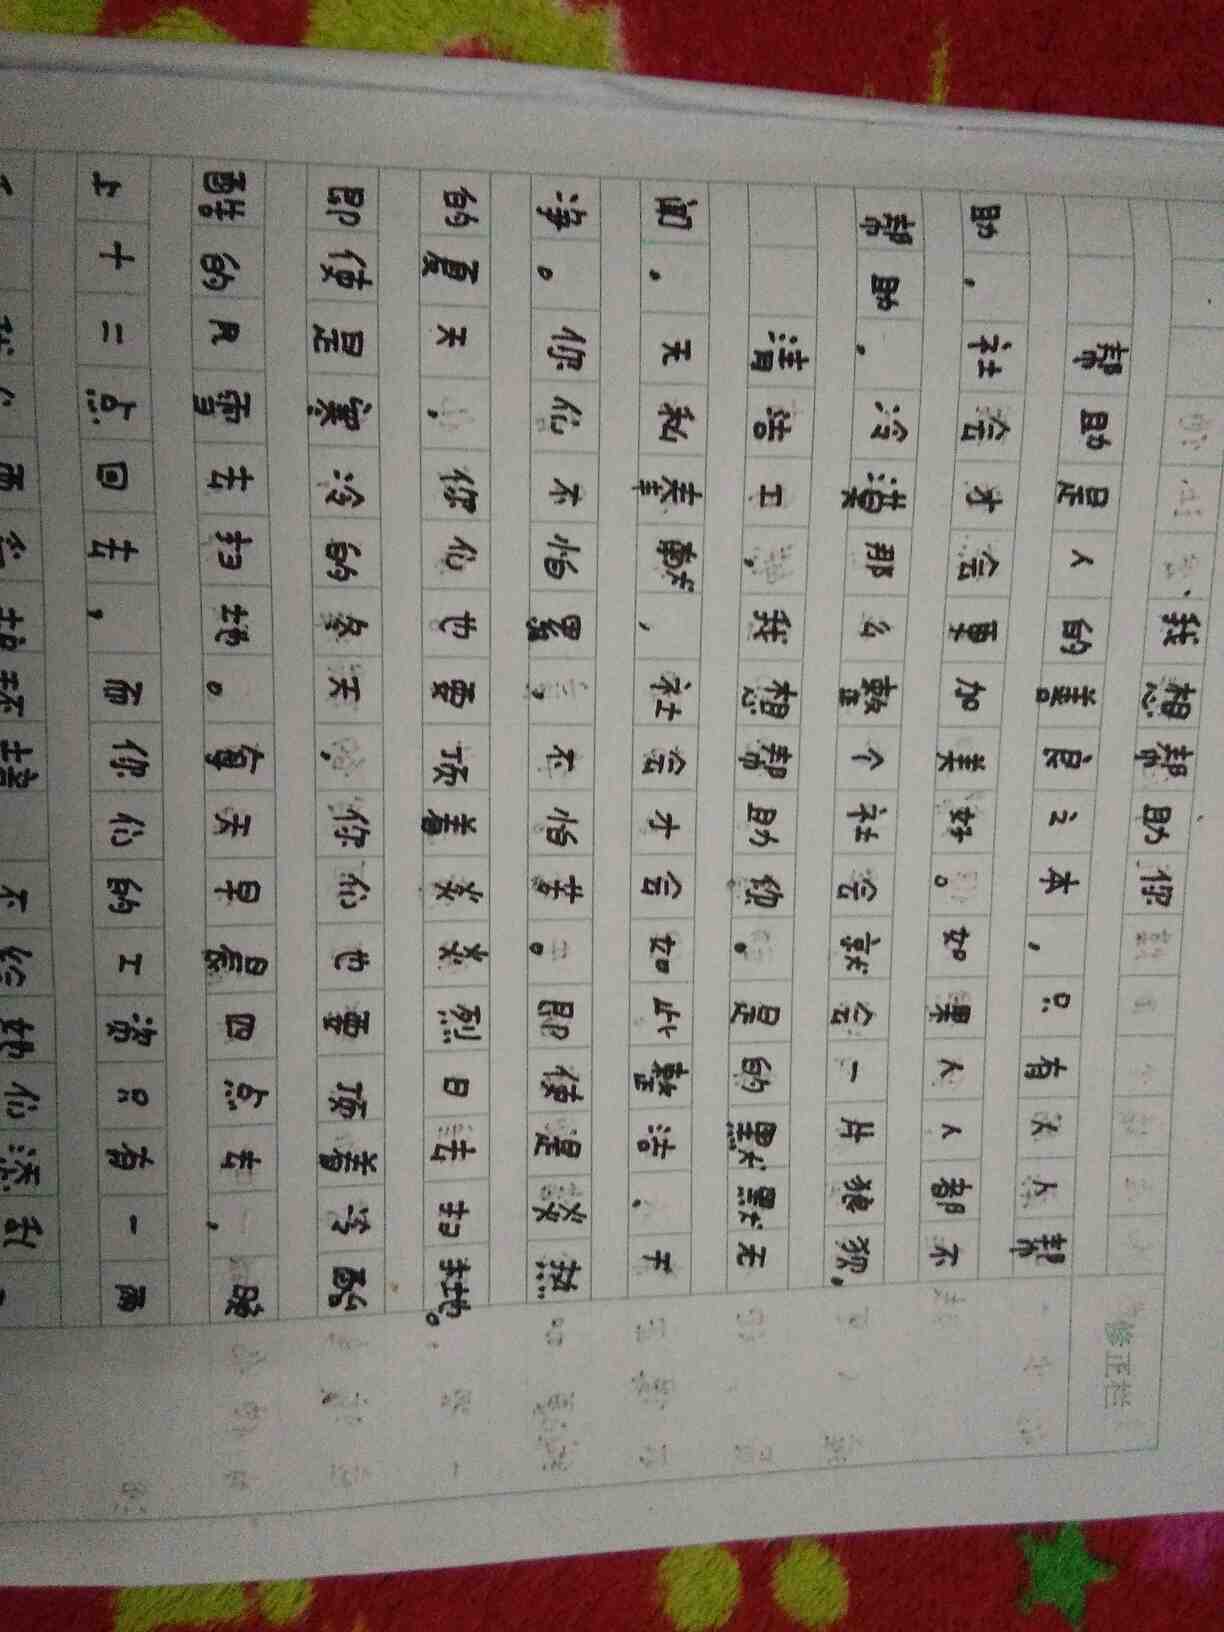 我想帮助你
帮助是人的善良之本，只有次人帮
助，社会才会更加美好。如果人人都不
帮助，冷漠那么整个社会就会一片狼狈，
清洁工，我想帮助你。是的默默无
闻，无私奉献，社会才会如此整洁、干
净。你们不怕累，不怕苦。即使是炎热
的夏天，你们也要顶着炎炎烈日去扫地。
即使是寒冷的冬天，你们也要顶着冷酷
酷的风雪去扫地。每天早晨四点去，晚
上十二点回去，而你们的工资只有一两
不给她们添乱
修正栏